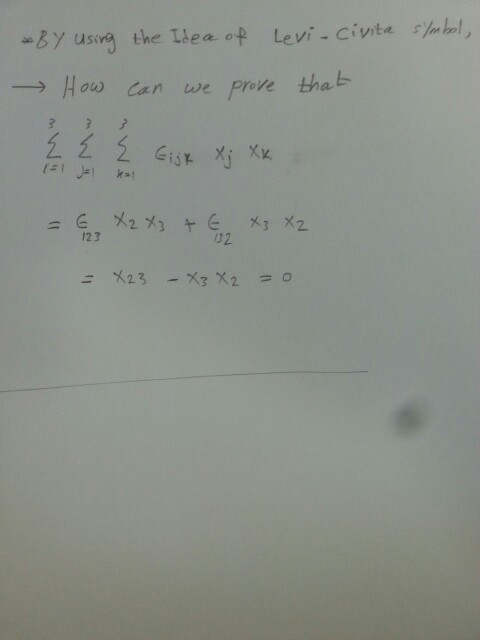 *BY using the Idea of Levi-Civita symbol,
→ How can we prove that
3 3 3
Σ Σ Σ ϵijk xj xk
i=1 j=1 k=1
= ϵ123 x2 x3 + ϵ132 x3 x2
= x23 - x3 x2 = 0